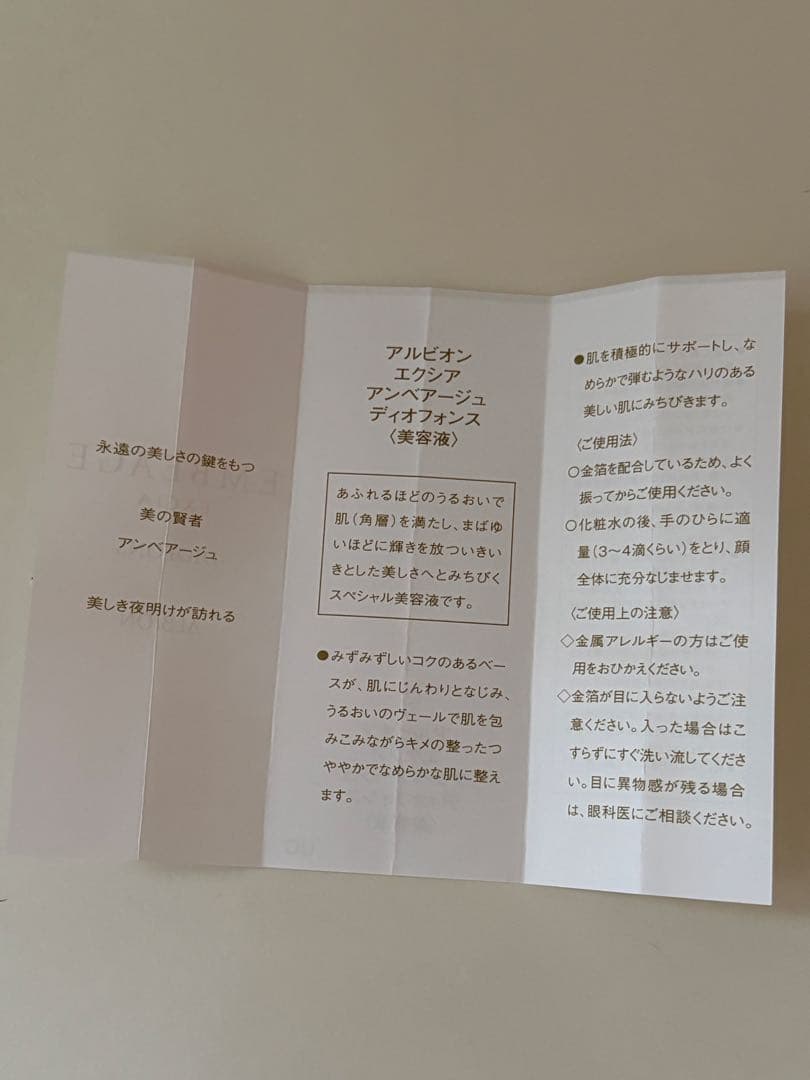 永遠の美しさの鍵をもつ
美の賢者
アンベアージュ
美しき夜明けが訪れる
アルビオン
エクシア
アンベアージュ
ディオフォンス
〈美容液〉
あふれるほどのうるおいで
肌（角層）を満たし、まばゆ
いほどに輝きを放ついきい
きとした美しさへとみちびく
スペシャル美容液です。
●みずみずしいコクのあるベー
スが、肌にじんわりとなじみ、
うるおいのヴェールで肌を包
みこみながらキメの整ったつ
ややかでなめらかな肌に整え
ます。
●肌を積極的にサポートし、な
めらかで弾むようなハリのある
美しい肌にみちびきます。
〈ご使用法〉
○金箔を配合しているため、よく
振ってからご使用ください。
○化粧水の後、手のひらに適
量（3〜4滴くらい）をとり、顔
全体に充分なじませます。
〈ご使用上の注意〉
◇金属アレルギーの方はご使
用をおひかえください。
◇金箔が目に入らないようご注
意ください。入った場合はこ
すらずにすぐ洗い流してくださ
い。目に異物感が残る場合
は、眼科医にご相談ください。